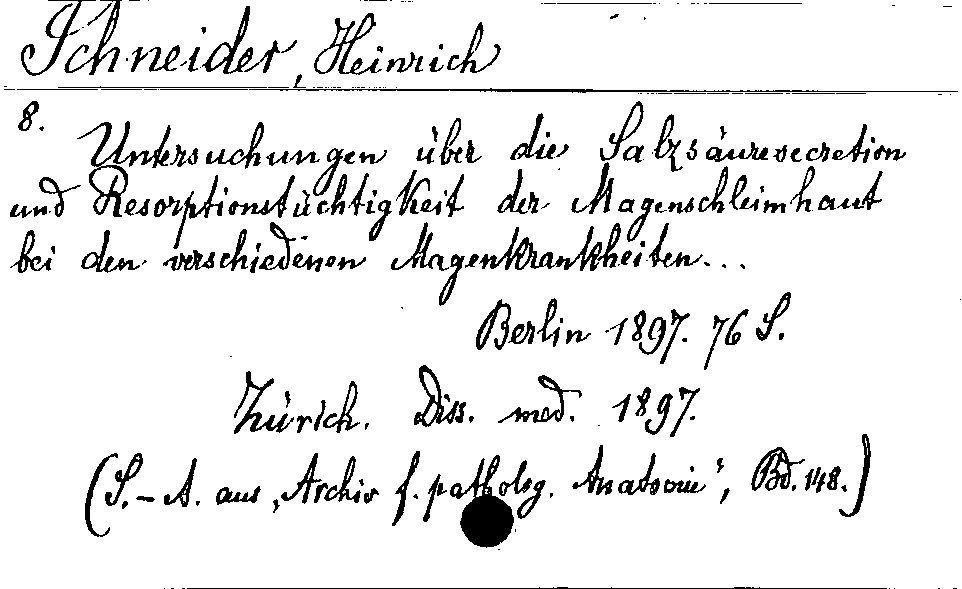 Schneider, Heinrich
8.
Untersuchungen über die Salzsäuresecretion
und Resorptionstüchtigkeit der Magenschleimhaut
bei den verschiedenen Magenkrankheiten...
Berlin 1897. 76 S.
Zürich. Diss. med. 1897.
(S.-A. aus "Archiv f. patholog. Anatomie", Bd. 148.)